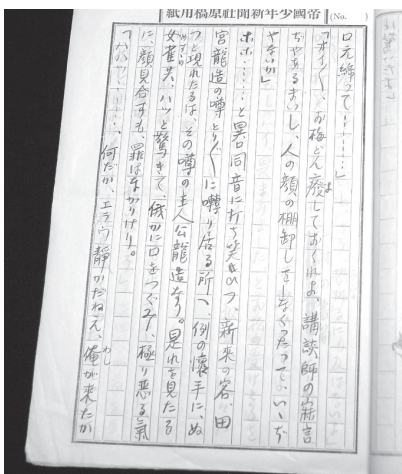 帝國少年新聞社原稿用紙
(No.　　)
口元締って――……」
「オイ〳〵、お梅どん廢しておくれよ、講談師の寐言
ぢやあるまいし、人の顔の棚卸しをしなくたつて、いゝぢ
やないか」
ホホ……と異口同音に打ち笑ひつ、新来の客、田
宮龍造の噂とり〴〵に囀り居る所へ、例の懐手に、ぬ
つと現れたるは、その噂の主人公龍造なり。是れを見たる
女雀共、ハッと驚きて、俄かに口をつぐみ、極り悪る氣
に、顔見合すも、罪は年かりけり。
「ハハッ……、何だか、エラウ靜かだねえ、俺が来たか
わし